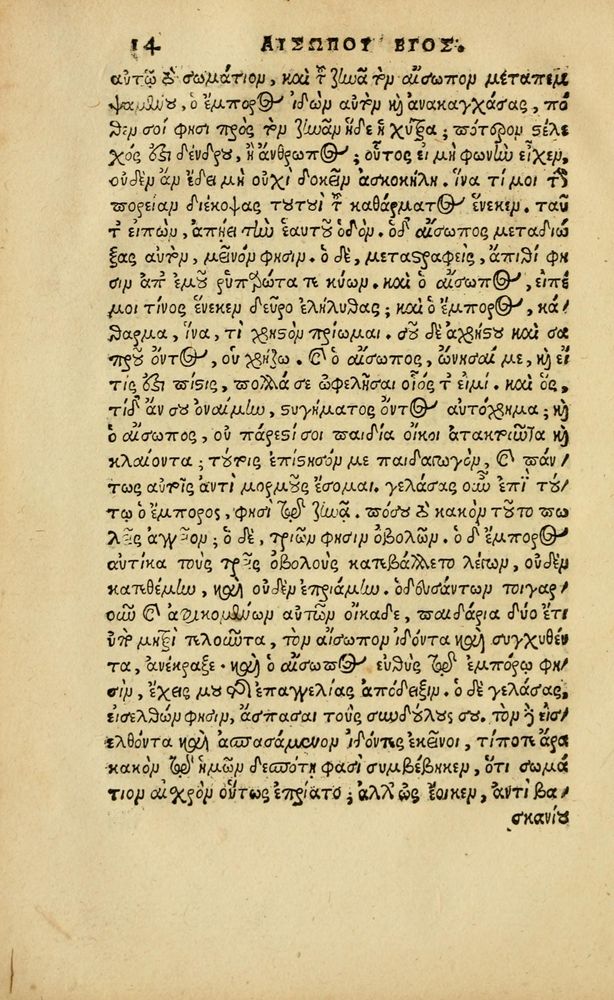 14 ΑΙΣΩΠΟΥ ΒΙΟΣ.
αὐτῷ ὂ σωμάτιον, καὶ τ ζωᾶ τὸν αἴσωπον μεταπεμ
ψαμένου, ὁ ἔμπορος ἰδὼν αὐτὸν κὴ ἀνακαγχάσας, πό
θεν σοί φησι πρὸς τὸν ζωᾶν ἥδε ἡ χύτρα; πότερον στέλε
χός ὅζι δένδρου, ἢ ἄνθρωπος; οὗτος εἰ μὴ φωνὴν εἶχεν,
οὐδὲν ἂν ἔδει μὴ οὐχὶ δοκεῖν ἀσκοκήλη. ἵνα τί μοι τὴν
πορείαν διέκοψας τουτουὶ τ καθάρματος ἕνεκεν. ταῦ
τ εἰπὼν, ἀπῄει τὴν ἑαυτοῦ ὁδόν. ὁ δ αἴσωπος μεταδιώ
ξας αὐτὸν, μεῖνόν φησιν. ὁ δὲ, μεταστραφεὶς, ἄπιθί φη
σιν ἀπ ἐμοῦ ῥυπαρώτατε κύων. καὶ ὁ αἴσωπος, εἰπέ
μοι τίνος ἕνεκεν δεῦρο ἐλήλυθας; καὶ ὁ ἔμπορος, κά/
θαρμα, ἵνα, τὶ χρηστὸν πρίωμαι. σοῦ δὲ ἀχρήστου καὶ σα
προῦ ὄντος, οὐ χρῄζω. Καὶ ὁ αἴσωπος, ὤνησαί με, κὴ εἴ
τίς ὅζι πίστις, πολλά σε ὠφελῆσαι οἷός τ εἰμί. καὶ ὃς,
τί δ ἂν σου ὀναίμην, στυγήματος ὄντος αὐτόχρημα; κὴ
ὁ αἴσωπος, οὐ πάρεστί σοι παιδία οἴκοι ἀτακτοῦντα κὴ
κλαίοντα; τούτοις ἐπίστησόν με παιδαγωγὸν, Καὶ πάν/
τως αὐτοῖς ἀντὶ μορμοῦς ἔσομαι. γελάσας οὖν ἐπὶ τού/
τῳ ὁ ἔμπορος, φησὶ τῷ ζωᾶ. πόσου ὂ κακὸν τοῦτο πω
λεῖς ἀγγεῖον; ὁ δὲ, τριῶν φησιν ὀβολῶν. ὁ δ ἔμπορος
αὐτίκα τοὺς τρεῖς ὀβολοὺς κατεβάλλετο λέγων, οὐδὲν
κατεθέμην, καὶ οὐδὲν ἐπριάμην. ὁδευσάντων τοιγαρ/
οῦν Καὶ ἀφικομένων αὐτῶν οἴκαδε, παιδάρια δύο ἔτι
ὑπὸ μητρὶ τελοῦντα, τὸν αἴσωπον ἰδόντα καὶ συγχυθέν
τα, ἀνέκραξε. καὶ ὁ αἴσωπος εὐθὺς τῷ ἐμπόρῳ φη/
σὶν, ἔχεις μου τῆς ἐπαγγελίας ἀπόδειξιν. ὁ δὲ γελάσας,
εἰσελθών φησιν, ἄσπασαι τοὺς συνδούλους σου. τὸν δὲ εἰσ/
ελθόντα καὶ ἀσπασάμενον ἰδόντες ἐκεῖνοι, τί ποτε ἄρα
κακὸν τῷ ἡμῶν δεσπότῃ φασὶ συμβέβηκεν, ὅτι σωμά
τιον αἰσχρὸν οὕτως ἐπρίατο; ἀλλ ὡς ἔοικεν, ἀντὶ βα/
σκανίου